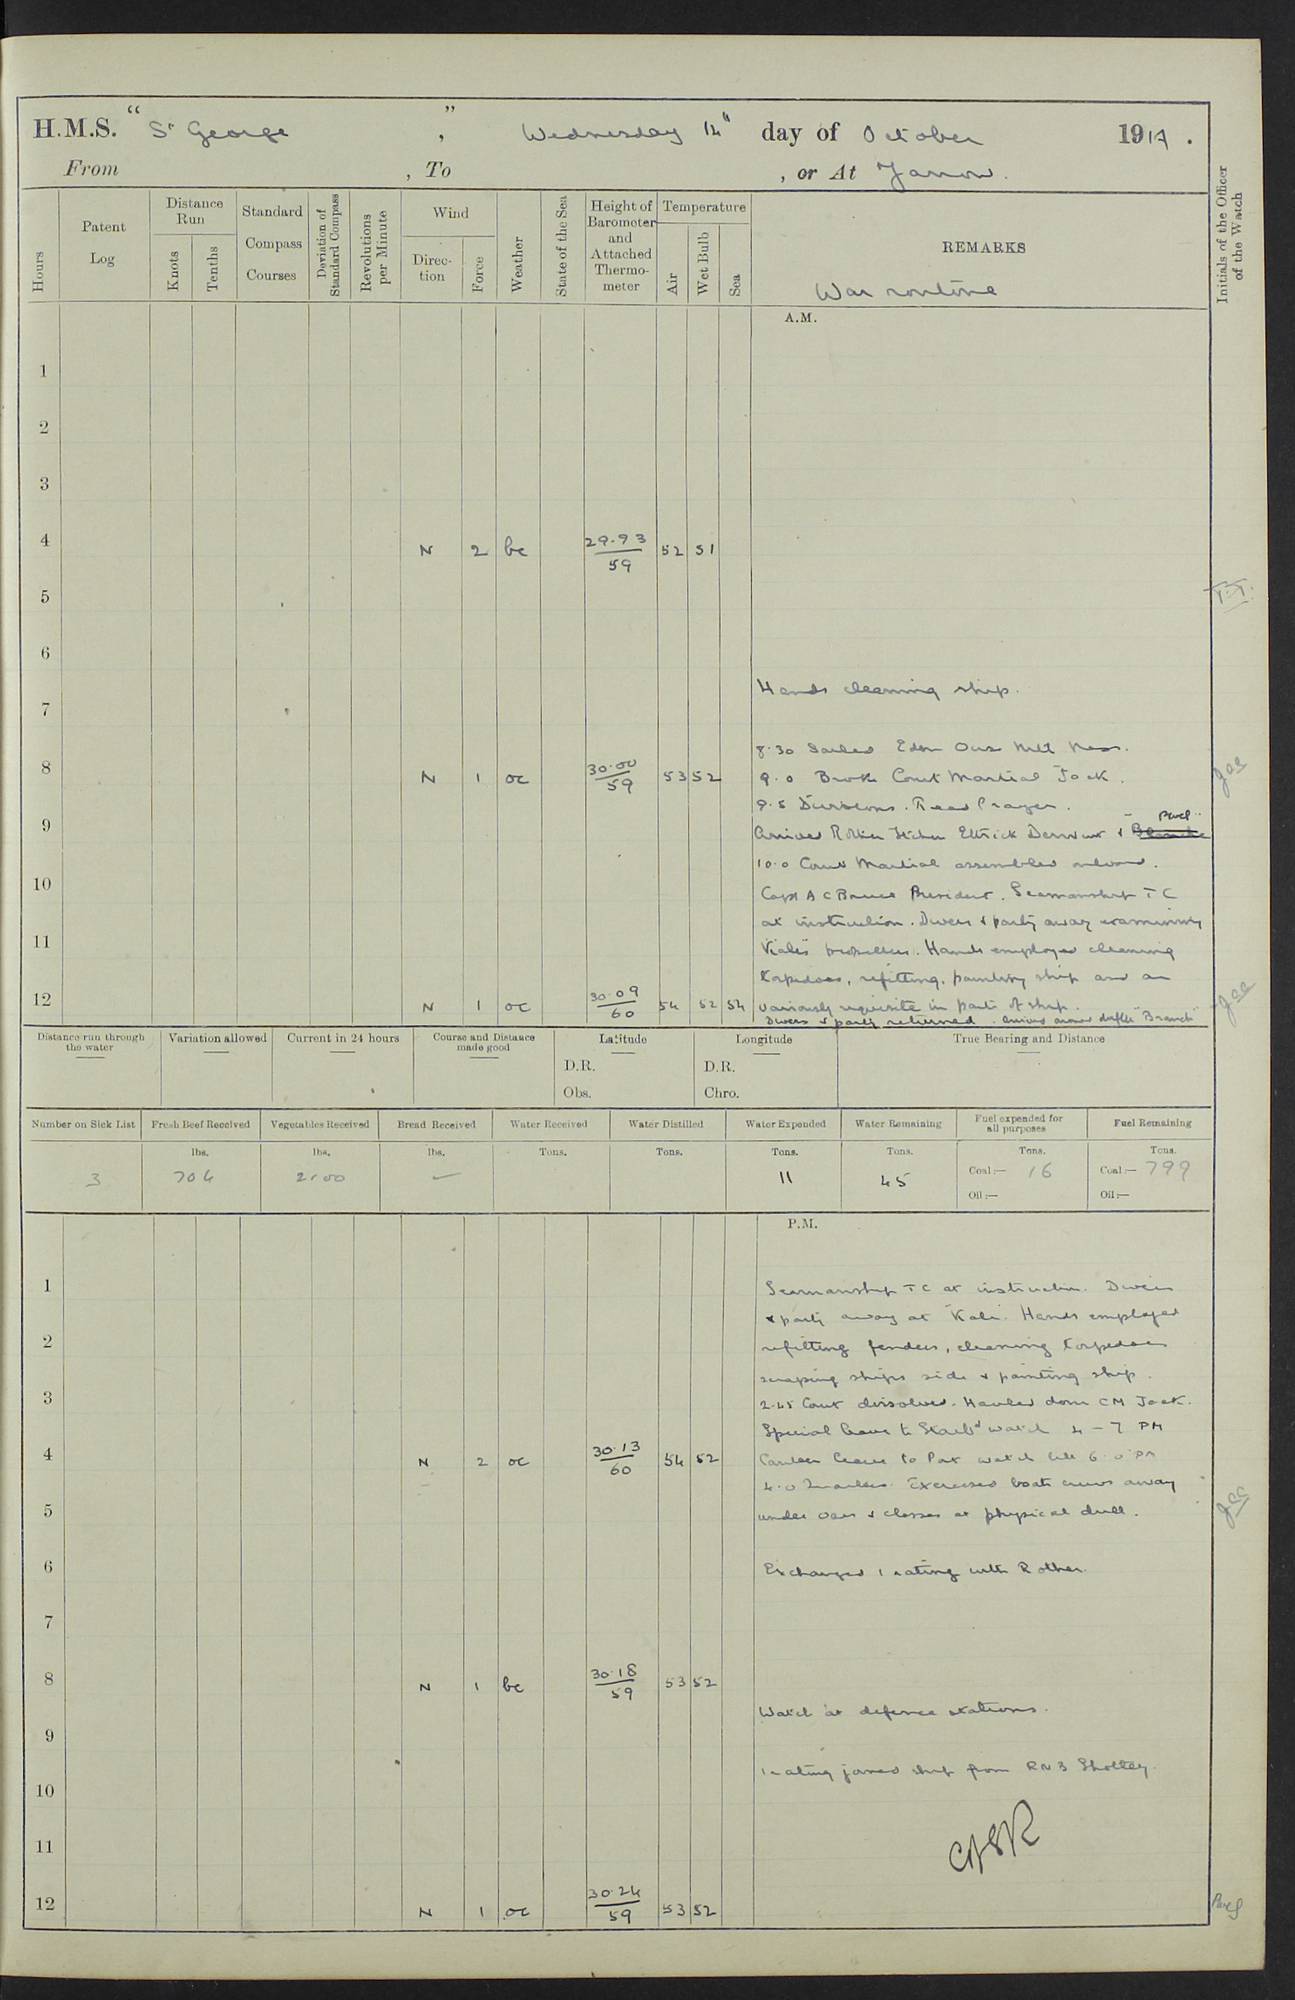 H.M.S. "St George", Wednesday 14th day of October 1914.
From , To , or At Yarrow.
Hours
Patent Log
Distance Run
Knots
Tenths
Standard Compass Courses
Deviation of Standard Compass
Revolutions per Minute
Wind
Direction
Force
Weather
State of the Sea
Height of Barometer and Attached Thermometer
Temperature
Air
Wet Bulb
Sea
REMARKS
War routine
Initials of the Officer of the Watch
A.M.
1
2
3
4 N 2 bc 29.93 59 52 51
5
T.T.
6
Hands cleaning ship.
7
8.30 Sailed Eden Ouse
8 N 1 oc 30.00 59 53 52
9.0 Broke Court Martial Jack.
9.5 Divisions. Read Prayers.
9
Arrived Rother Itchen Ettrick Derwent &
10.0 Court Martial assembled onboard.
10
Capt A C Bruce President. Seamanship T C
at instruction. Divers & party away examining
11
"Kale's" propellers. Hands employed cleaning
torpedoes, refitting, painting ship and as
12 N 1 oc 30.09 60 54 52 54
variously requisite in parts of ship.
Divers & party returned.
Distance run through the water
Variation allowed
Current in 24 hours
Course and Distance made good
Latitude
D.R.
Obs.
Longitude
D.R.
Chro.
True Bearing and Distance
Number on Sick List
Fresh Beef Received
Vegetables Received
Bread Received
Water Received
Water Distilled
Water Expended
Water Remaining
Fuel expended for all purposes
Fuel Remaining
lbs. lbs. lbs. Tons. Tons. Tons. Tons. Tons. Tons.
3 704 — 11 45 Coal:— 16 Coal:— 799
Oil:— Oil:—
P.M.
1
Seamanship T C at instruction. Divers
& party away at Kale. Hands employed
2
refitting fenders, cleaning torpedoes
scraping ships side & painting ship.
3
2.45 Court dissolved. Hauled down CM Jack.
Special leave to Starbd watch 4 – 7 PM
4 N 2 oc 30.13 60 54 52
Canteen leave to Port watch till 6.0 PM
4.0 Quarters. Exercised boats crews away
5
under oars & classes at physical drill.
6
Exchanged 1 rating with Rother.
7
8 N 1 bc 30.18 59 53 52
Watch at defence stations.
9
1 rating joined ship from RNB Shotley.
10
11
12 N 1 oc 30.24 59 53 52